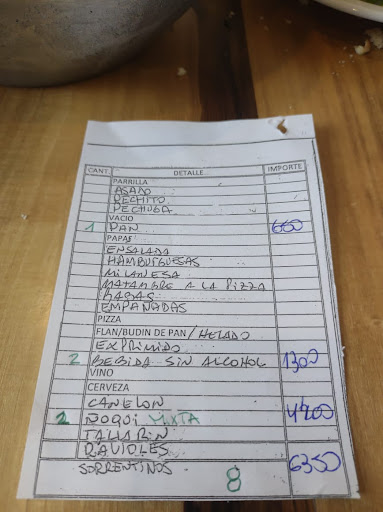 CANT. DETALLE IMPORTE
PARRILLA
ASADO
PECHITO
PECHUGA
VACIO
1 PAN 660
PAPAS
ENSALADA
HAMBURGUESAS
MILANESA
MATAMBRE A LA PIZZA
RABAS
EMPANADAS
PIZZA
FLAN/BUDIN DE PAN/HELADO
EXPRIMIDO
2 BEBIDA SIN ALCOHOL 1300
VINO
CERVEZA
CANELON
2 ÑOQUI MIXTA
TALLARIN
RAVIOLES 6350
SORRENTINOS
8